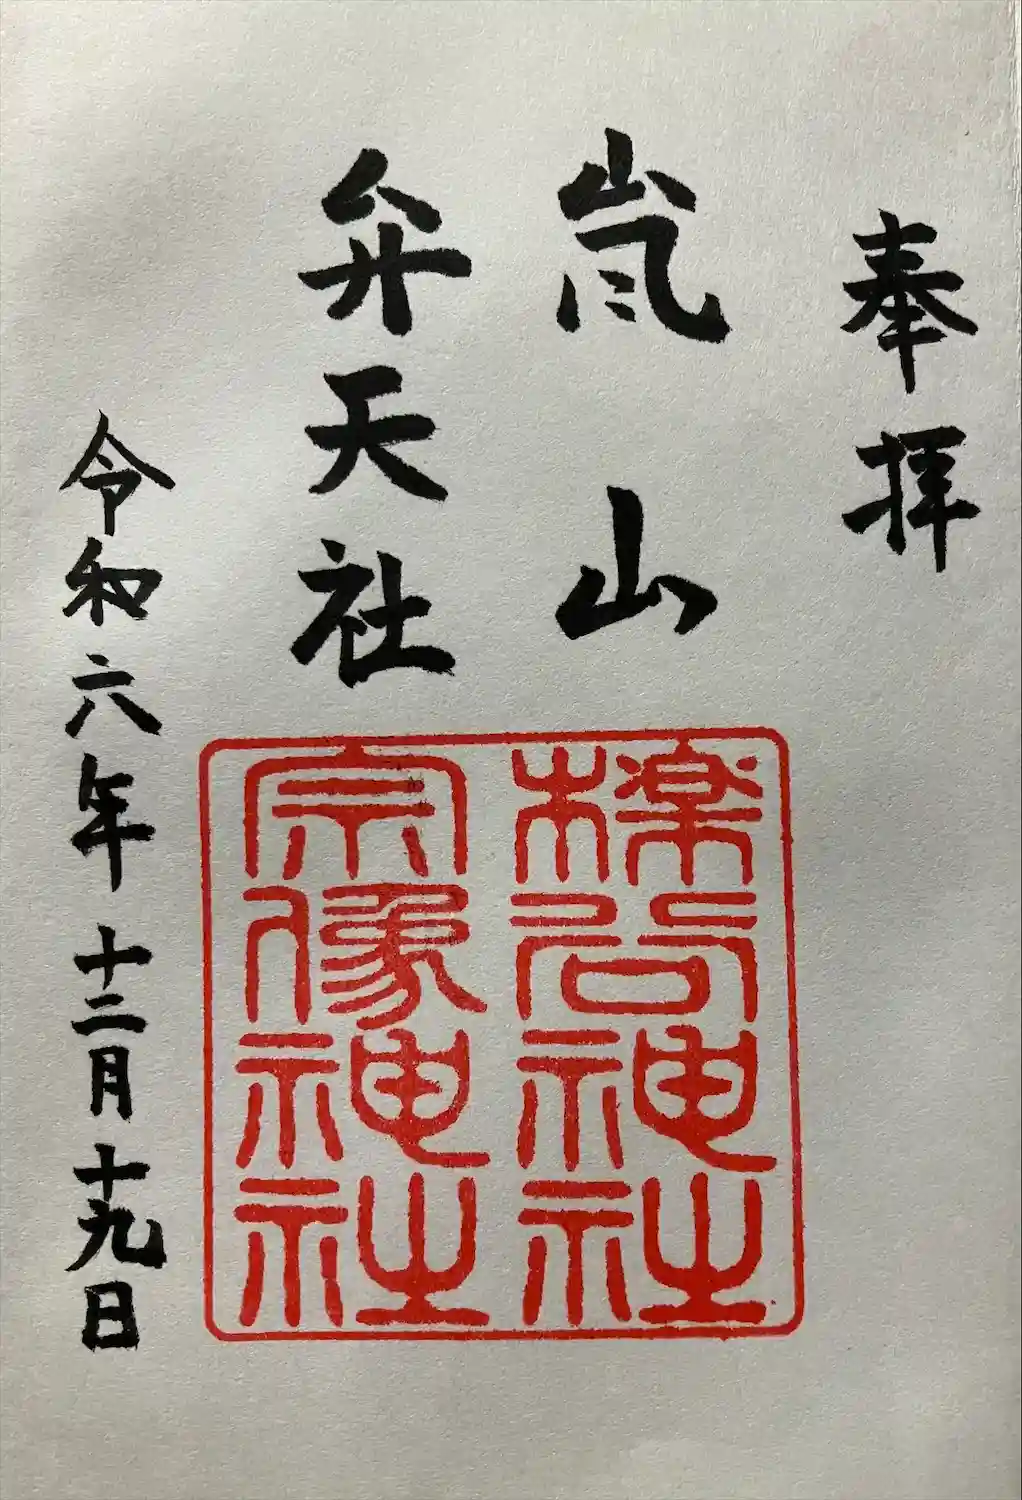 奉拝
嵐山
弁天社
令和六年十二月十九日
檪谷神社
宗像神社